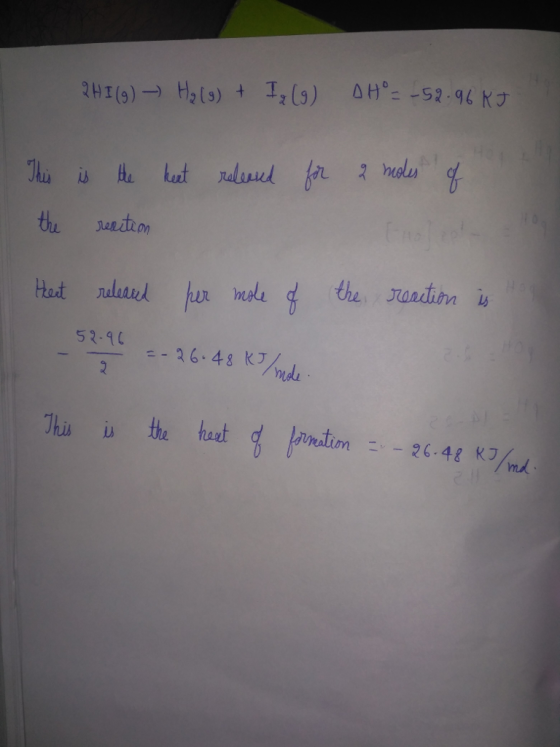 2HI(g) → H₂(g) + I₂(g) ΔH° = -52.96 KJ
This is the heat released for 2 moles of
the reaction
Heat released per mole of the reaction is
- 52.96/2 = - 26.48 KJ/mole.
This is the heat of formation = - 26.48 KJ/mol.